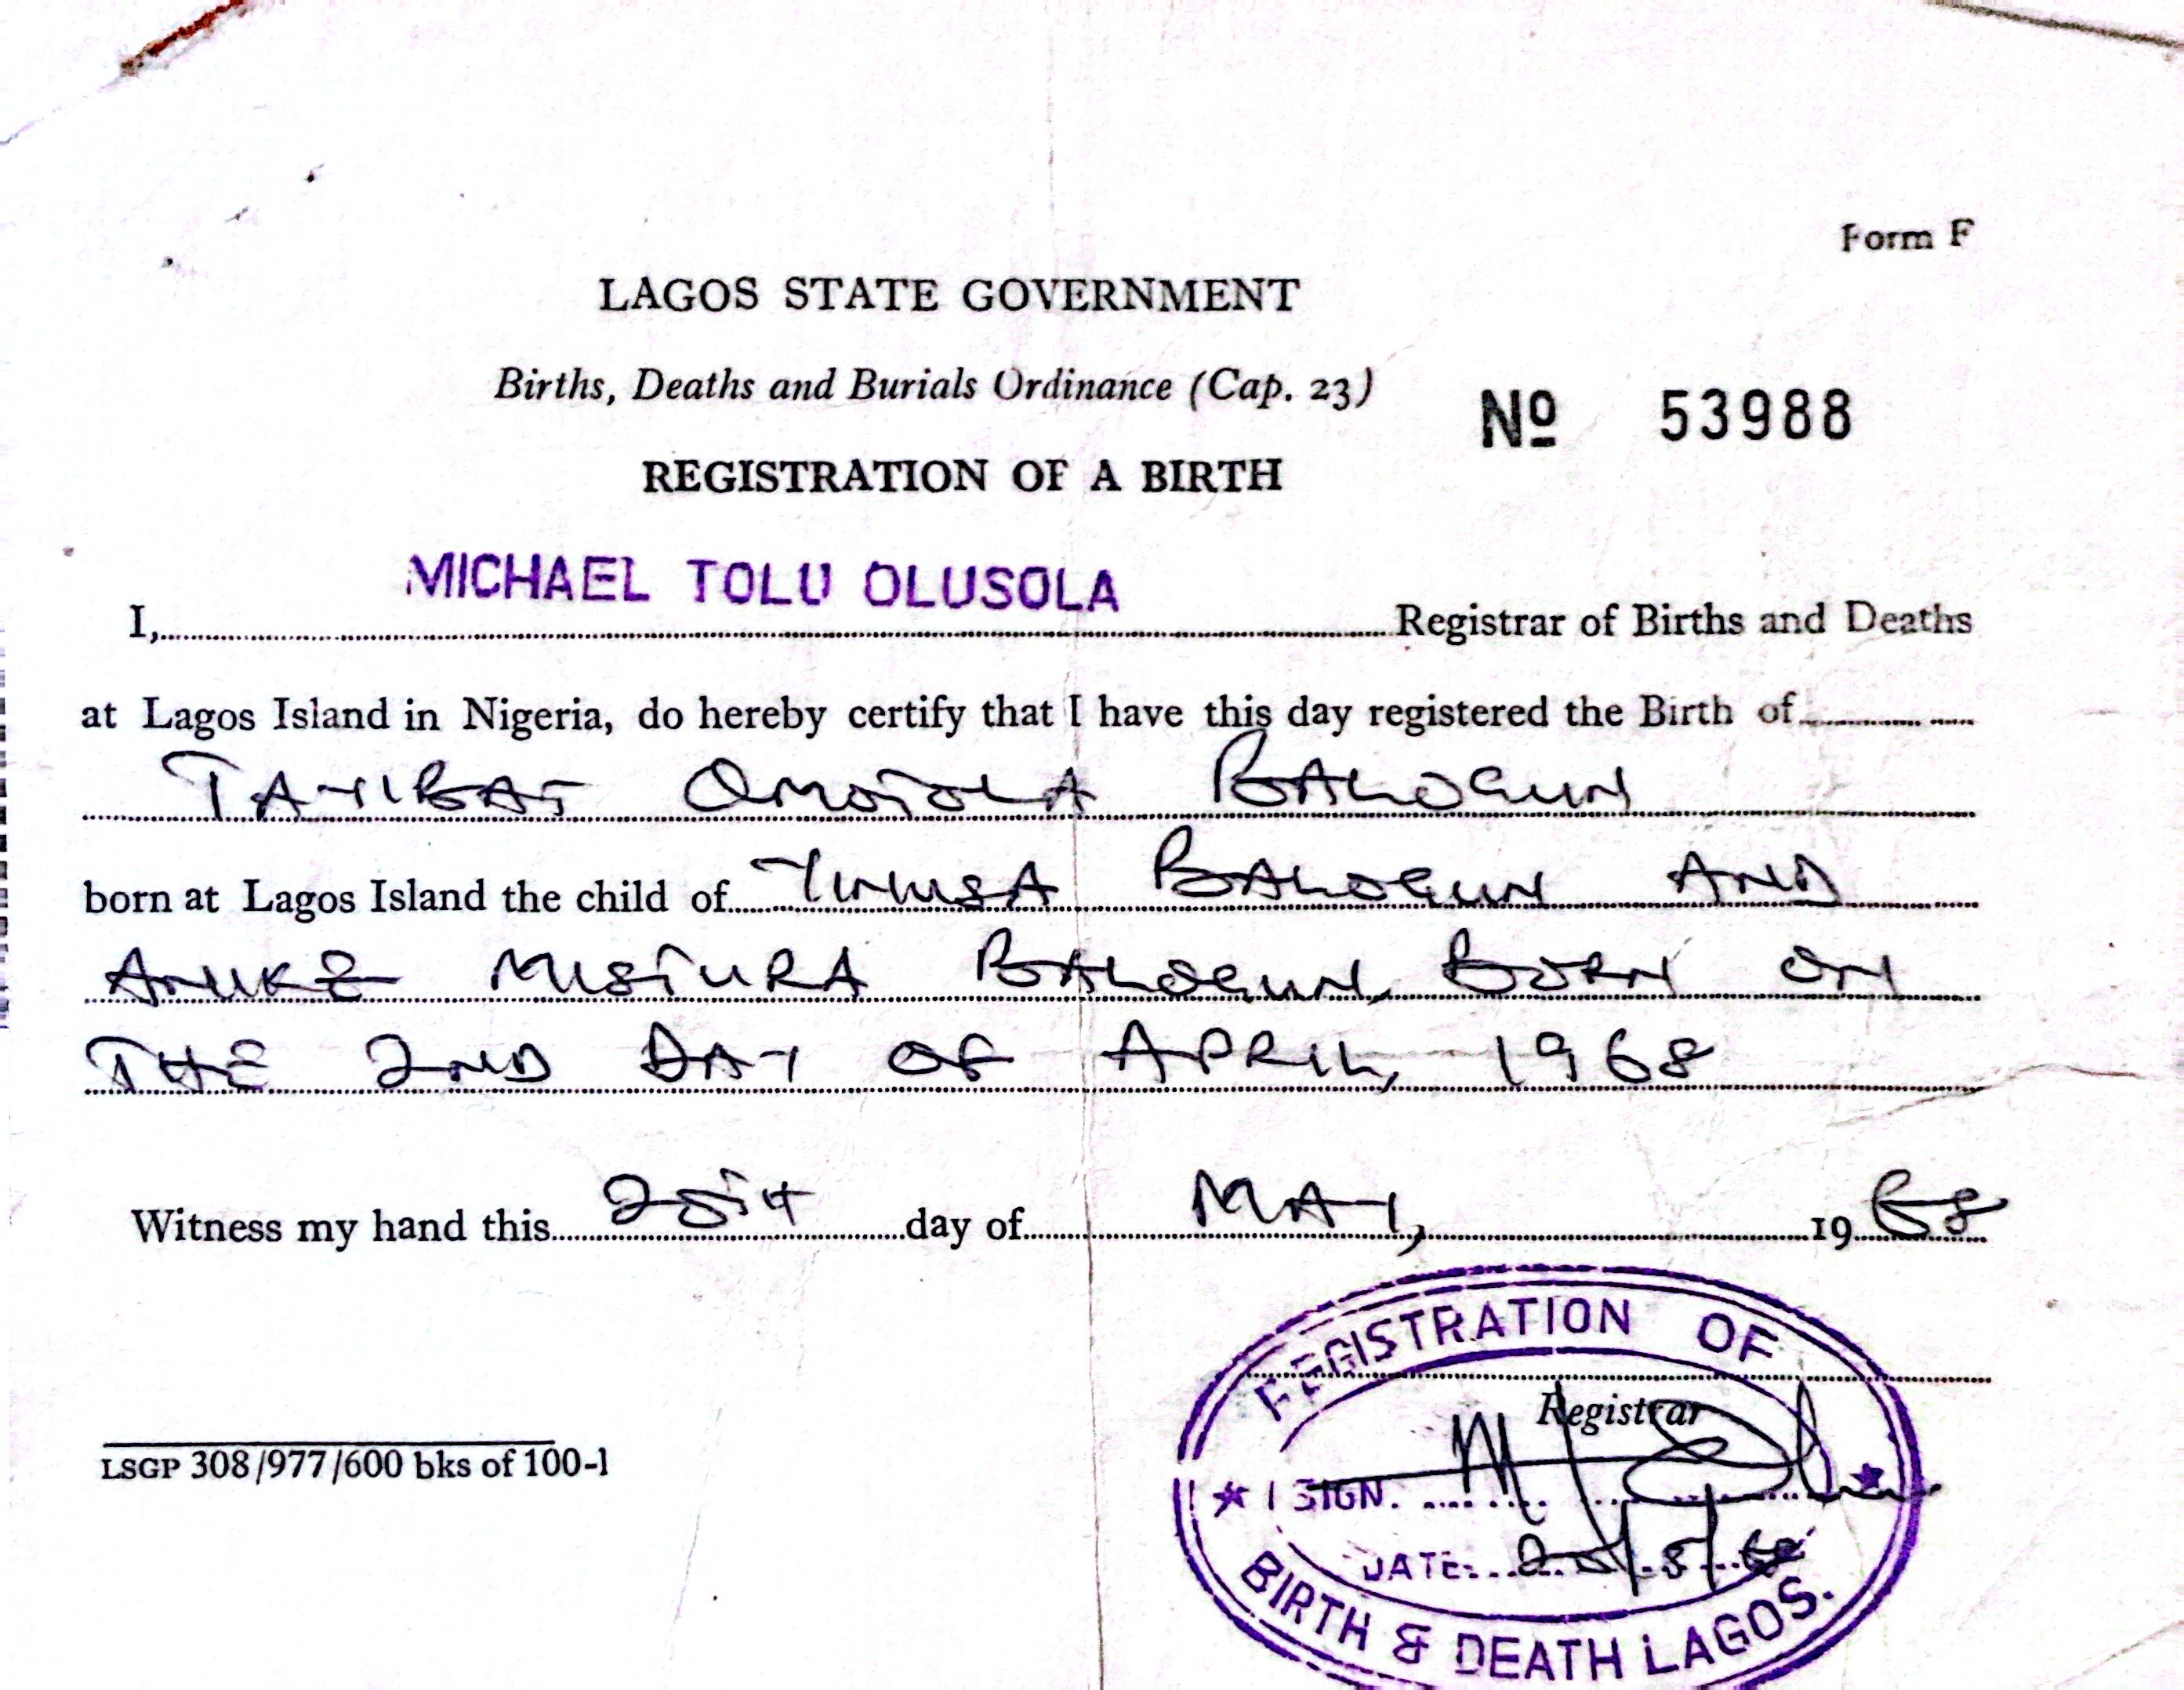 Form F
LAGOS STATE GOVERNMENT
Births, Deaths and Burials Ordinance (Cap. 23)
Nº 53988
REGISTRATION OF A BIRTH
MICHAEL TOLU OLUSOLA
I,..........Registrar of Births and Deaths
at Lagos Island in Nigeria, do hereby certify that I have this day registered the Birth of..........
TAYIBAT OMOTOLA BALOGUN
born at Lagos Island the child of YUNUSA BALOGUN AND
ANUKE MISTURA BALOGUN, BORN ON
THE 2ND DAY OF APRIL, 1968
Witness my hand this 20TH day of MAY, 1968
REGISTRATION OF
Registrar
SIGN.
DATE: 20/5/68
BIRTH & DEATH LAGOS.
LSGP 308/977/600 bks of 100-1